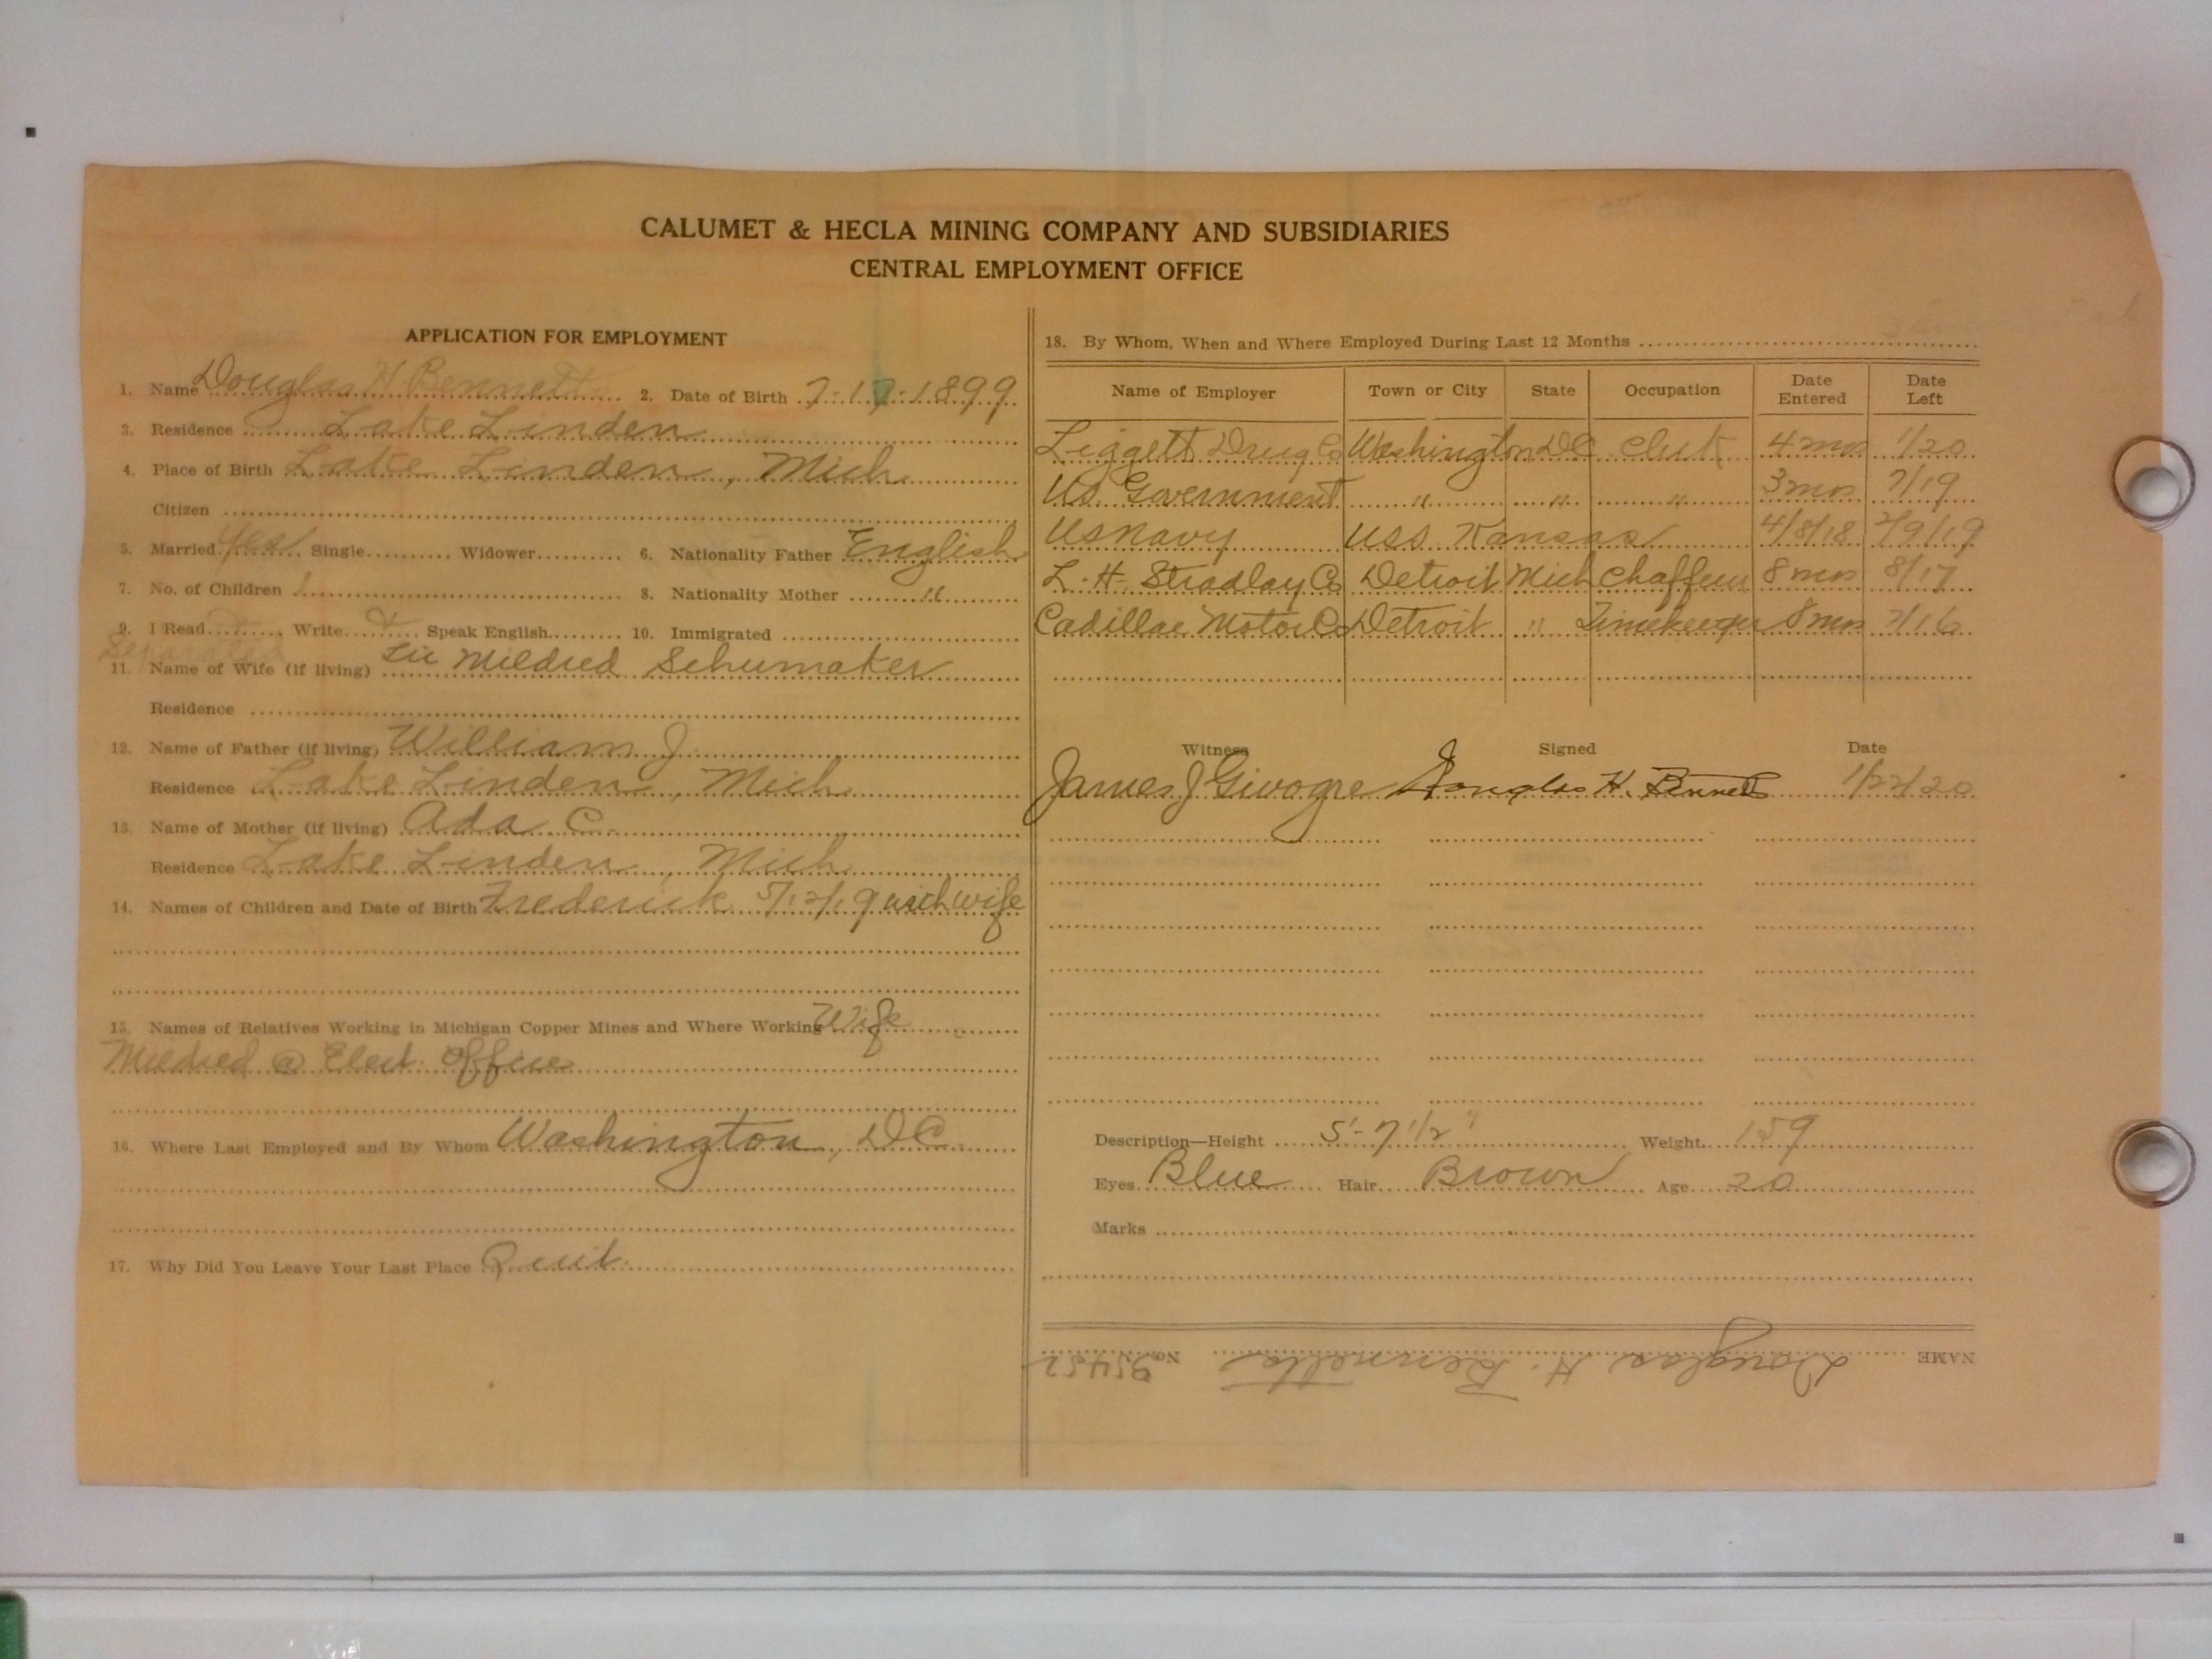 CALUMET & HECLA MINING COMPANY AND SUBSIDIARIES
CENTRAL EMPLOYMENT OFFICE
APPLICATION FOR EMPLOYMENT
1. Name Douglas H Bennett 2. Date of Birth 7-17-1899
3. Residence Lake Linden
4. Place of Birth Lake Linden, Mich
Citizen
5. Married Yes Single Widower 6. Nationality Father English
7. No. of Children 1 8. Nationality Mother "
9. I Read Write Speak English 10. Immigrated
Separated
11. Name of Wife (if living) Mildred Schumaker
Residence
12. Name of Father (if living) William J.
Residence Lake Linden, Mich
13. Name of Mother (if living) Ada C.
Residence Lake Linden, Mich
14. Names of Children and Date of Birth Frederick 5/12/19 with wife
15. Names of Relatives Working in Michigan Copper Mines and Where Working Wife
Mildred @ Elect. Office
16. Where Last Employed and By Whom Washington, DC
17. Why Did You Leave Your Last Place Quit.
18. By Whom, When and Where Employed During Last 12 Months
Name of Employer Town or City State Occupation Date Entered Date Left
Liggett Drug Co Washington DC Clerk 4 mos 1/20
US. Government " " " 3 mos 7/19
US Navy USS Kansas 4/8/18 2/9/19
L. H. Stradlay Co Detroit Mich Chaffeur 8 mos 8/17
Cadillac Motor Co Detroit " Timekeeper 8 mos 7/16
Witness Signed Date
James J Givogre Douglas H. Bennett 1/22/20
Description—Height 5'-7 1/2" Weight 159
Eyes Blue Hair Brown Age 20
Marks
NAME Douglas H. Bennetts No. 35452